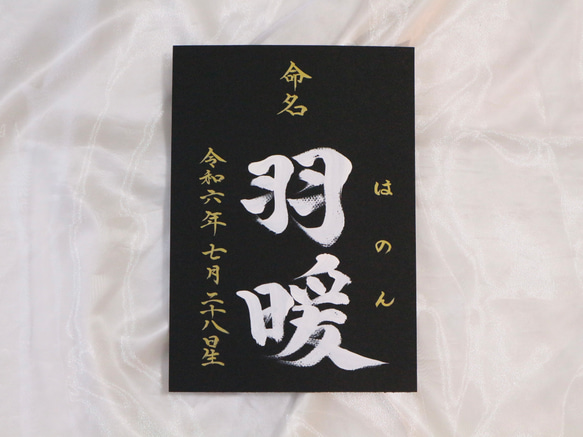 命名
はのん
羽暖
令和六年七月二十八日生